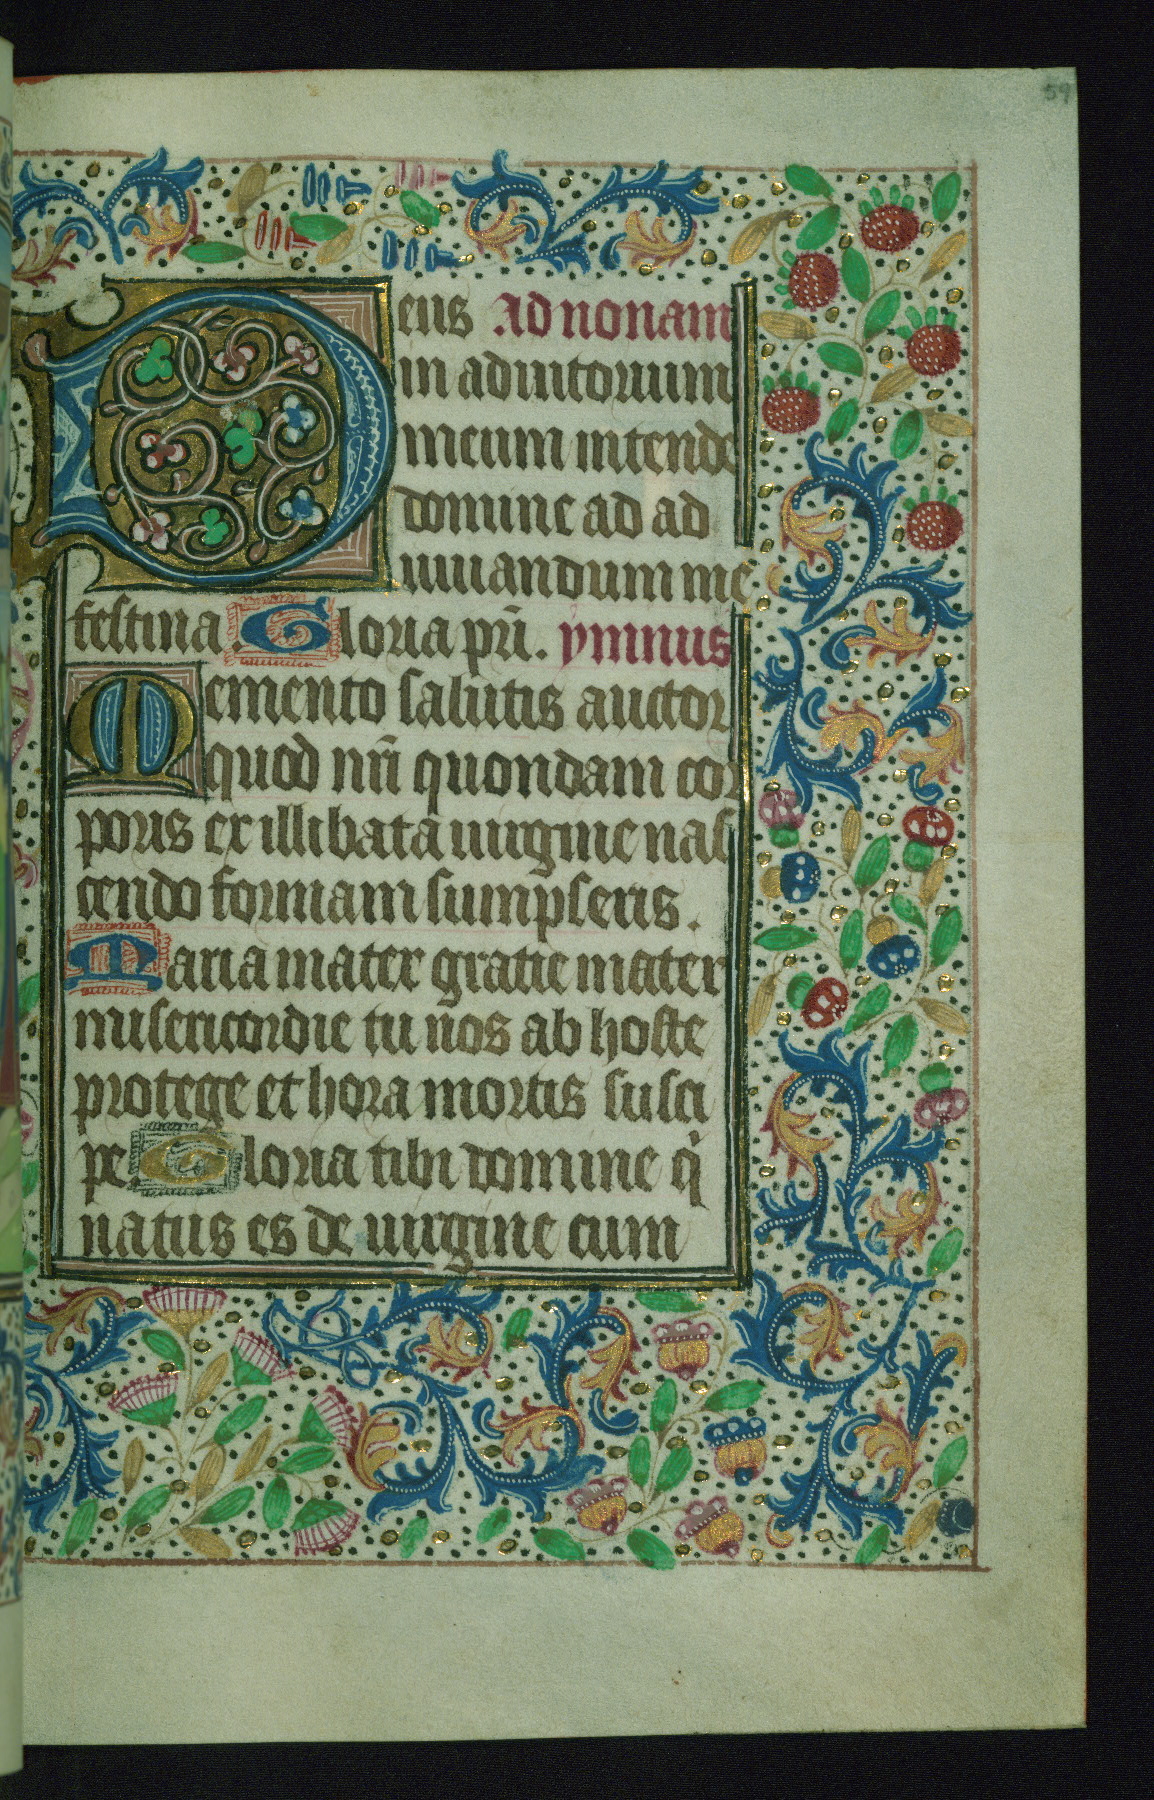 59
Deus Ad nonam
in adiutorium
meum intende
domine ad ad
iuuandum me
festina Gloria pr̄i. ẏmnus
Memento salutis auctor
quod nr̄i quondam cor
poris ex illibata uirgine nas
cendo formam sumpseris.
Maria mater gratie mater
misericordie tu nos ab hoste
protege et hora mortis susci
pe Gloria tibi domine qͥ
natus es de uirgine cum